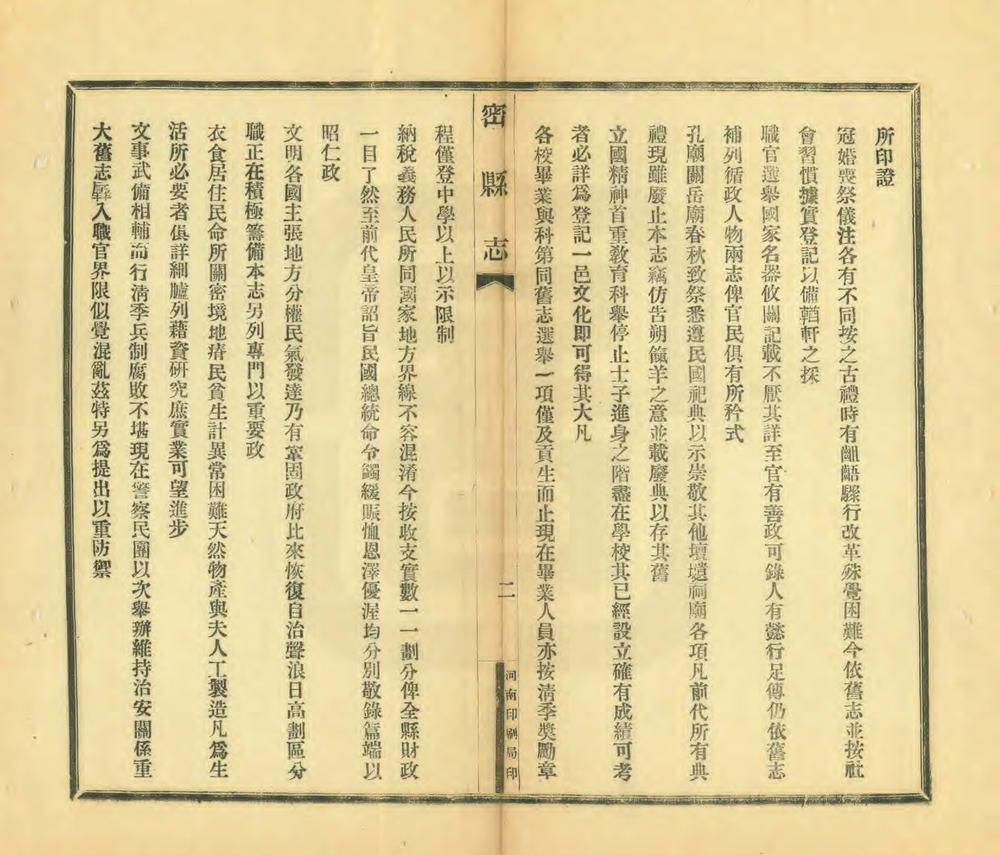 所印證
冠婚喪祭儀注各有不同按之古禮時有齟齬驟行改革殊覺困難今依舊志並按社
會習慣據實登記以備輶軒之採
職官選舉國家名器攸關記載不厭其詳至官有善政可錄人有懿行足傳仍依舊志
補列循政人物兩志俾官民俱有所矜式
孔廟關岳廟春秋致祭悉遵民國祀典以示崇敬其他壇壝祠廟各項凡前代所有典
禮現雖廢止本志竊仿告朔餼羊之意並載廢典以存其舊
立國精神首重敎育科舉停止士子進身之階盡在學校其已經設立確有成績可考
者必詳爲登記一邑文化即可得其大凡
各校畢業與科第同舊志選舉一項僅及貢生而止現在畢業人員亦按淸季奬勵章
密縣志
二
河南印刷局印
程僅登中學以上以示限制
納稅義務人民所同國家地方界線不容混淆今按收支實數一一劃分俾全縣財政
一目了然至前代皇帝詔旨民國總統命令蠲緩賑恤恩澤優渥均分別敬錄篇端以
昭仁政
文明各國主張地方分權民氣發達乃有鞏固政府比來恢復自治聲浪日高劃區分
職正在積極籌備本志另列專門以重要政
衣食居住民命所關密境地瘠民貧生計異常困難天然物產與夫人工製造凡爲生
活所必要者俱詳細臚列藉資研究庶實業可望進步
文事武備相輔而行淸季兵制腐敗不堪現在警察民團以次舉辦維持治安關係重
大舊志羼入職官界限似覺混亂茲特另爲提出以重防禦